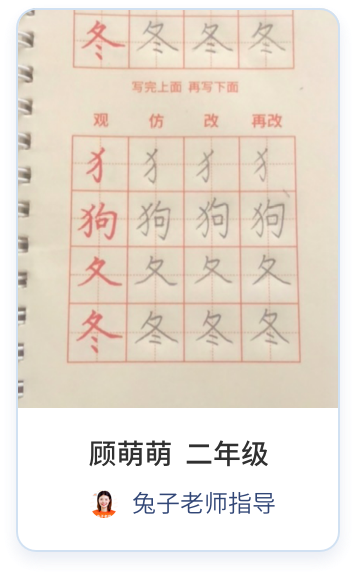 冬 冬 冬 冬
写完上面 再写下面
观 仿 改 再改
犭 犭 犭 犭
狗 狗 狗 狗
夂 夂 夂 夂
冬 冬 冬 冬
顾萌萌 二年级
兔子老师指导